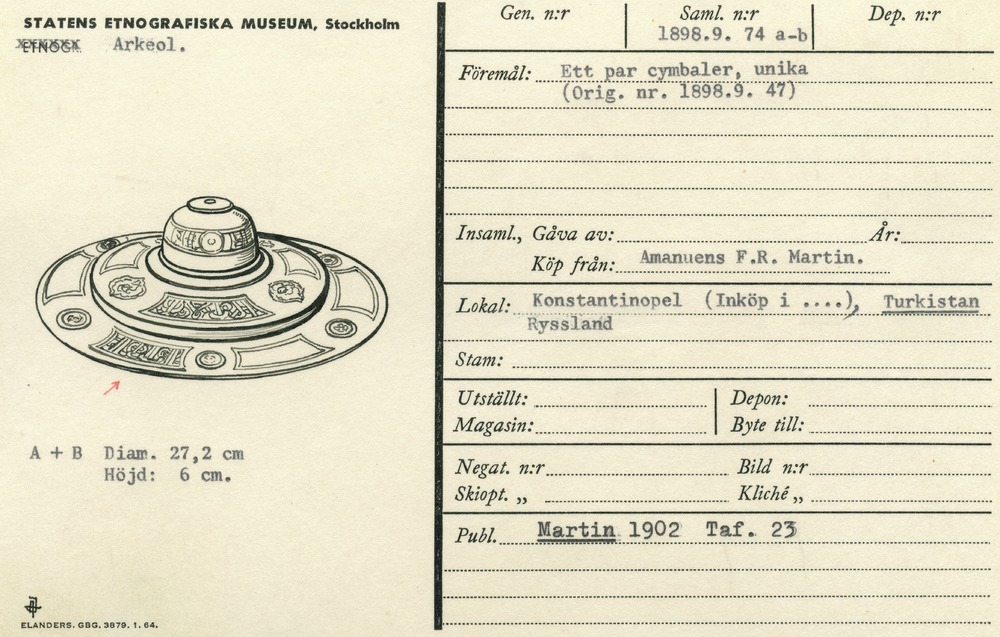 STATENS ETNOGRAFISKA MUSEUM, Stockholm
Arkeol.
A + B Diam. 27,2 cm
Höjd: 6 cm.
ELANDERS. GBG. 3879. 1. 64.
Gen. n:r
Saml. n:r
1898.9. 74 a-b
Dep. n:r
Föremål: Ett par cymbaler, unika
(Orig. nr. 1898.9. 47)
Insaml., Gåva av: År:
Köp från: Amanuens F.R. Martin.
Lokal: Konstantinopel (Inköp i ....), Turkistan
Ryssland
Stam:
Utställt: Depon:
Magasin: Byte till:
Negat. n:r Bild n:r
Skiopt. „ Kliché „
Publ. Martin 1902 Taf. 23